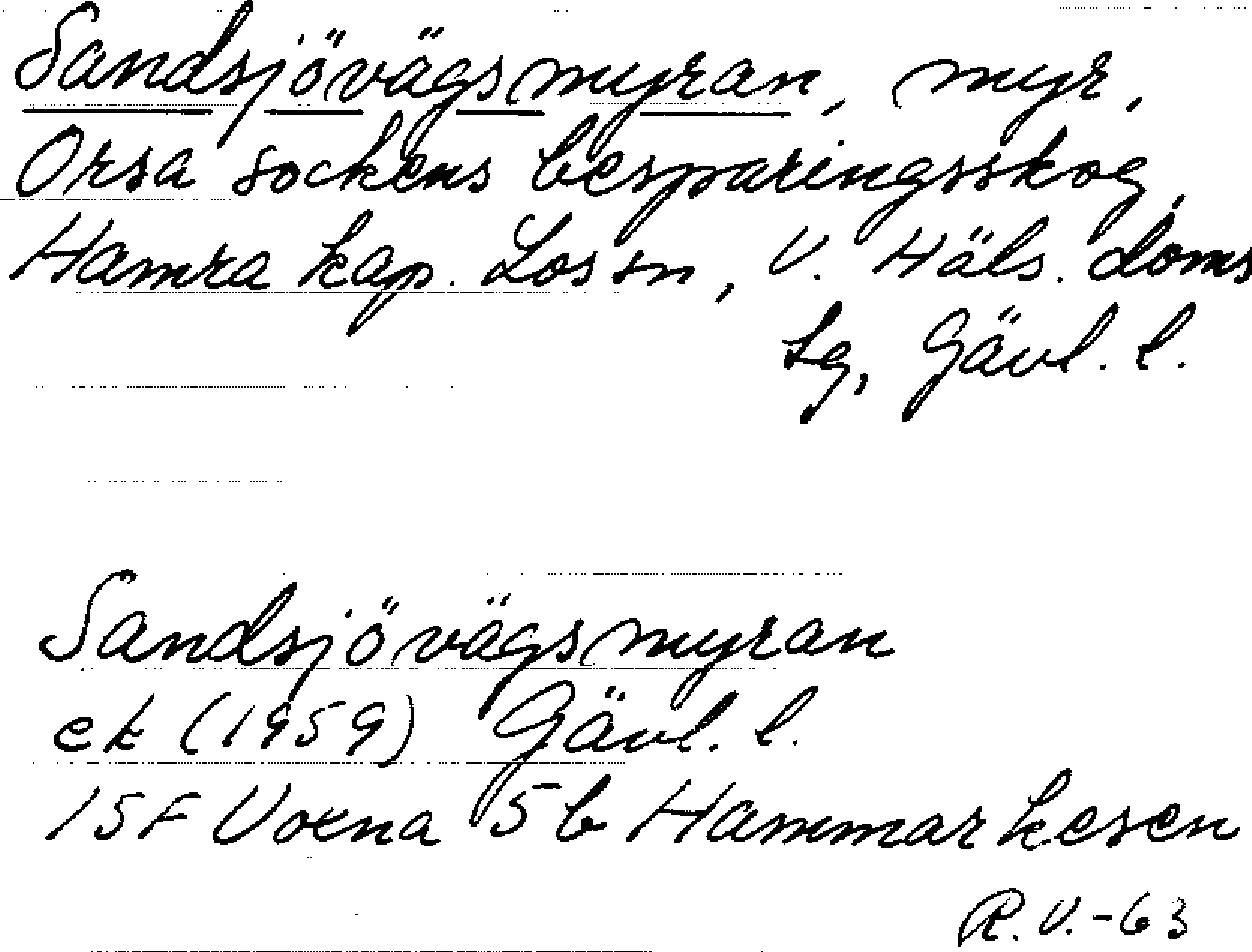 Sandsjövägsmyran, myr,
Orsa sockens besparingsskog,
Hamra kap. Los sn, V. Häls. doms
sg, Gävl. l.
Sandsjövägsmyran
ek (1959) Gävl. l.
15F Voxna 5b Hammarkesen
R.V.-63